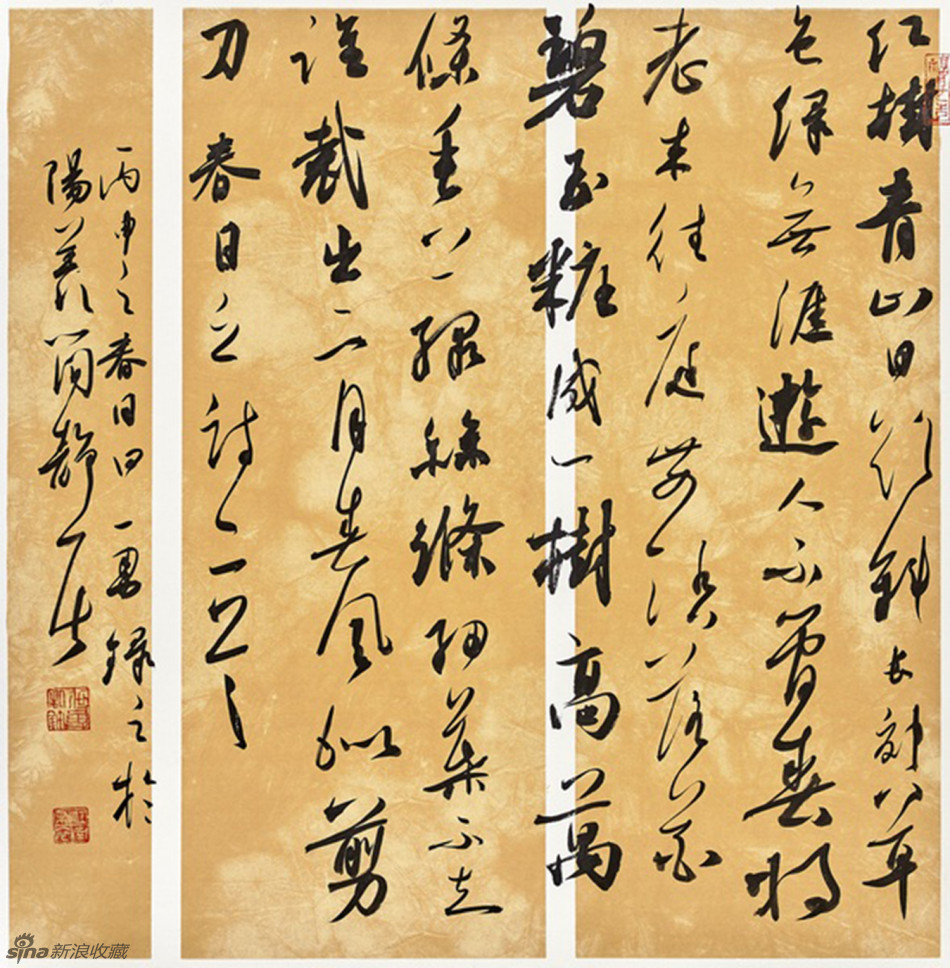 红樹青山日欲斜長郊草
色绿無涯遊人不管春將
老来往庭前踏落花
碧玉粧成一樹高萬
條垂下綠絲縧細葉不知
誰裁出二月春風似剪
刀春日之詩二
丙申之春日日一勇錄之於
陽羨簡靜居
sina新浪收藏